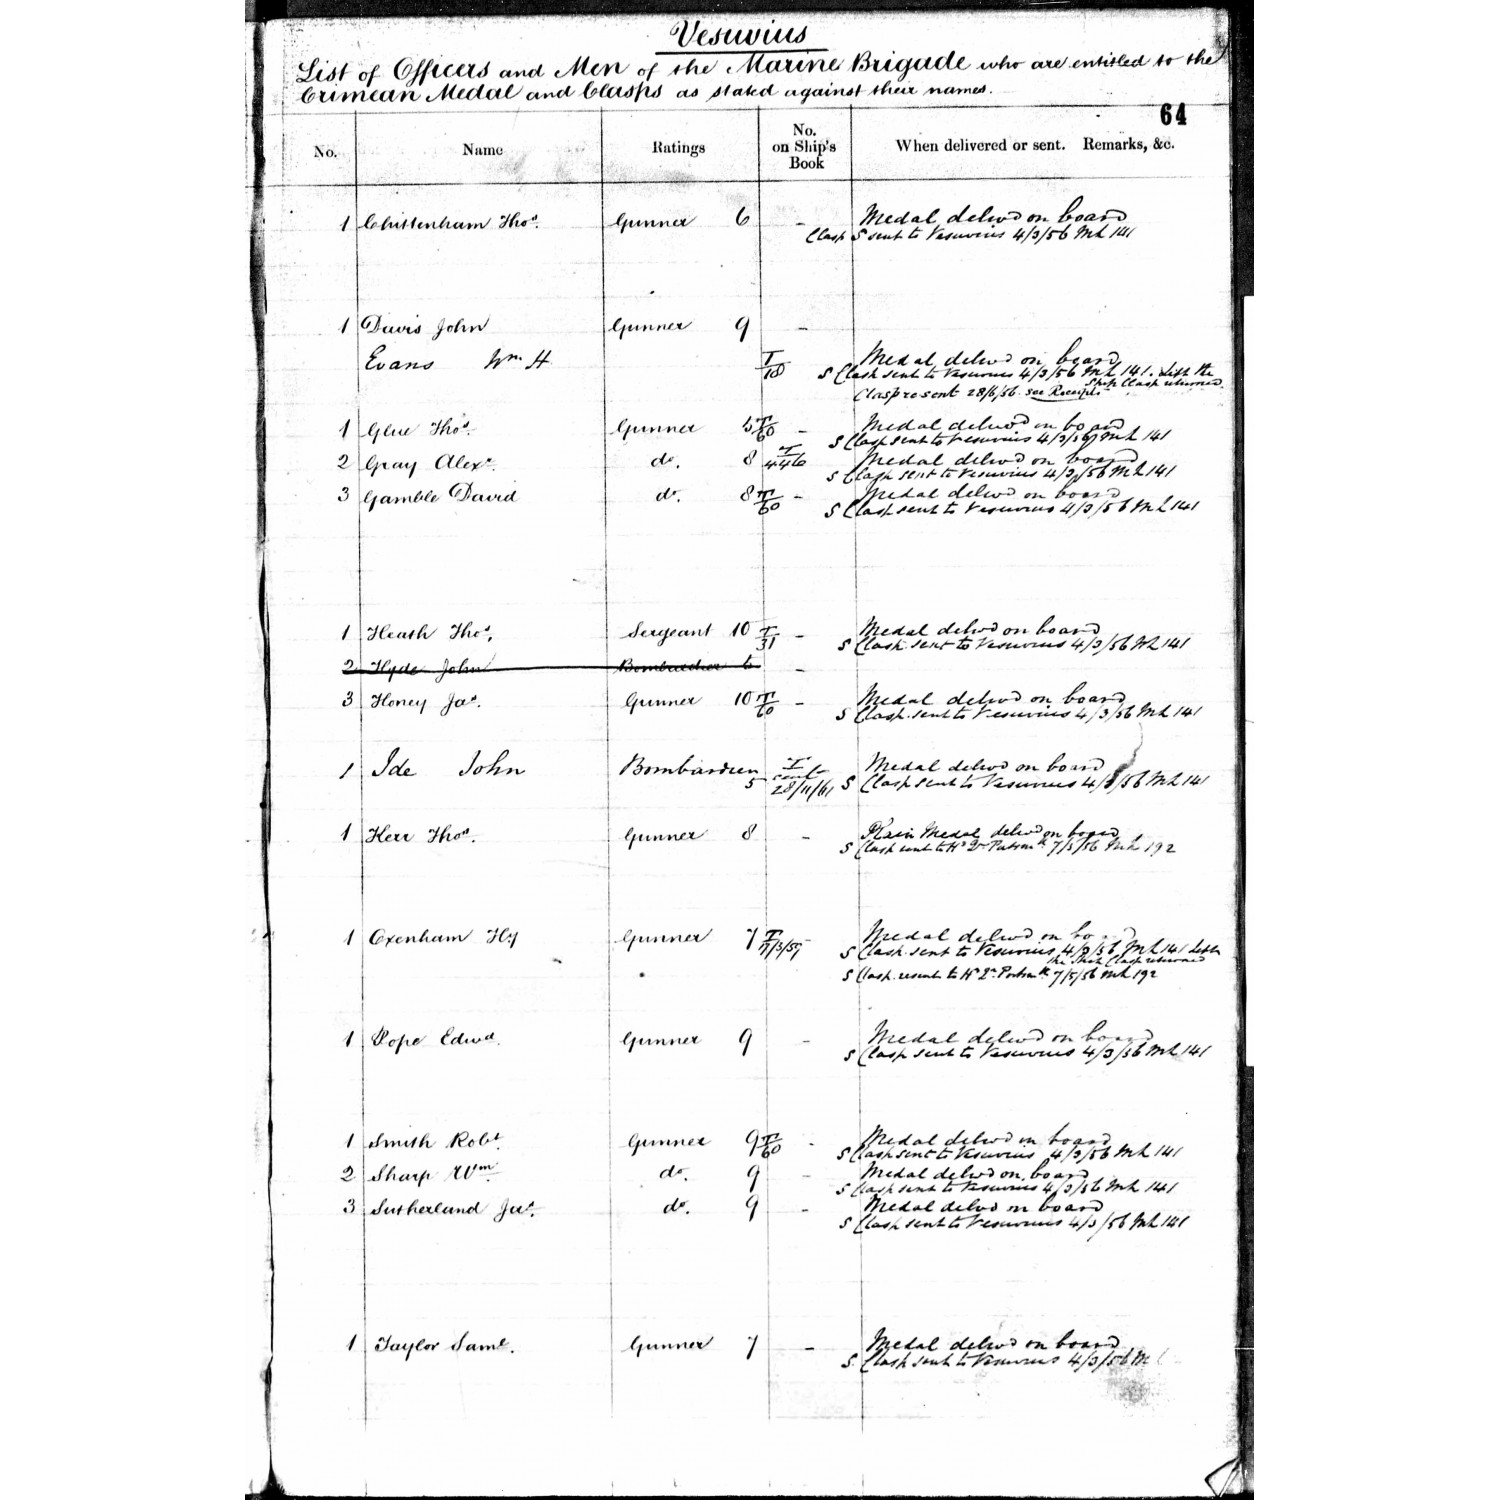 Vesuvius
List of Officers and Men of the Marine Brigade who are entitled to the
Crimean Medal and Clasps as stated against their names.
64
No. Name Ratings No. on Ship's Book When delivered or sent. Remarks, &c.
1 Chittenham Thos. Gunner 6 - Medal delivd on board
Clasp S sent to Vesuvius 4/3/56 Mk 141
1 Davis John Gunner 9 -
Evans Wm. H T/18 Medal delivd on board
S Clasp sent to Vesuvius 4/3/56 Mk 141. Left the
Ship Clasp returned
Clasp resent 28/6/56 see Receipt
1 Glue Thos. Gunner 5 T/60 - Medal delivd on board
S Clasp sent to Vesuvius 4/3/56 Mk 141
2 Gray Alexr. do. 8 T/446 Medal delivd on board
S Clasp sent to Vesuvius 4/3/56 Mk 141
3 Gamble David do. 8 T/60 - Medal delivd on board
S Clasp sent to Vesuvius 4/3/56 Mk 141
1 Heath Thos. Sergeant 10 T/31 - Medal delivd on board
S Clasp sent to Vesuvius 4/3/56 Mk 141
2 Hyde John Bombardier 6 -
3 Honey Jas. Gunner 10 T/60 - Medal delivd on board
S Clasp sent to Vesuvius 4/3/56 Mk 141
1 Ide John Bombardier 5 T 28/11/61 Medal delivd on board
S Clasp sent to Vesuvius 4/3/56 Mk 141
1 Kerr Thos. Gunner 8 - Plain Medal delivd on board
S Clasp sent to Hd Qrs Portsmth 7/5/56 Mk 192
1 Oxenham Hy Gunner 7 T/7/3/59 Medal delivd on board
S Clasp sent to Vesuvius 4/3/56 Mk 141 Left
the Ship Clasp returned
S Clasp resent to Hd Qrs Portsmth 7/5/56 Mk 192
1 Pope Edwd. Gunner 9 - Medal delivd on board
S Clasp sent to Vesuvius 4/3/56 Mk 141
1 Smith Robt. Gunner 9 T/60 - Medal delivd on board
S Clasp sent to Vesuvius 4/3/56 Mk 141
2 Sharp Wm. do. 9 - Medal delivd on board
S Clasp sent to Vesuvius 4/3/56 Mk 141
3 Sutherland Jas. do. 9 - Medal delivd on board
S Clasp sent to Vesuvius 4/3/56 Mk 141
1 Taylor Saml. Gunner 7 - Medal delivd on board
S Clasp sent to Vesuvius 4/3/56 Mk